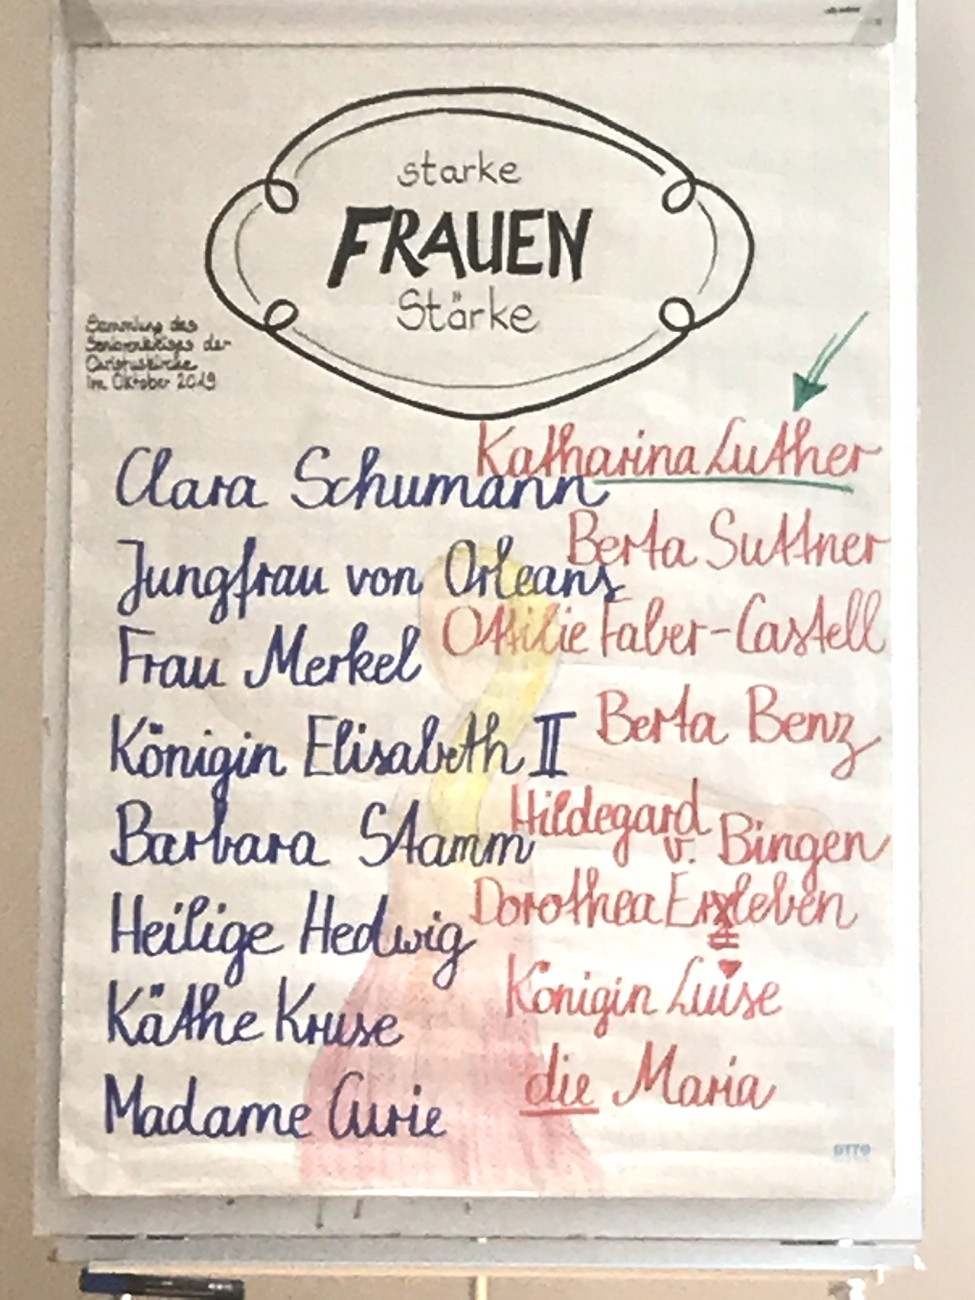 starke
FRAUEN
Stärke
Sammlung des
Seniorenkreises der
Christuskirche
im Oktober 2019
Clara Schumann
Jungfrau von Orleans
Frau Merkel
Königin Elisabeth II
Barbara Stamm
Heilige Hedwig
Käthe Kruse
Madame Curie
Katharina Luther
Berta Suttner
Ottilie Faber-Castell
Berta Benz
Hildegard
v. Bingen
Dorothea Erxleben
Königin Luise
die Maria
OTTO